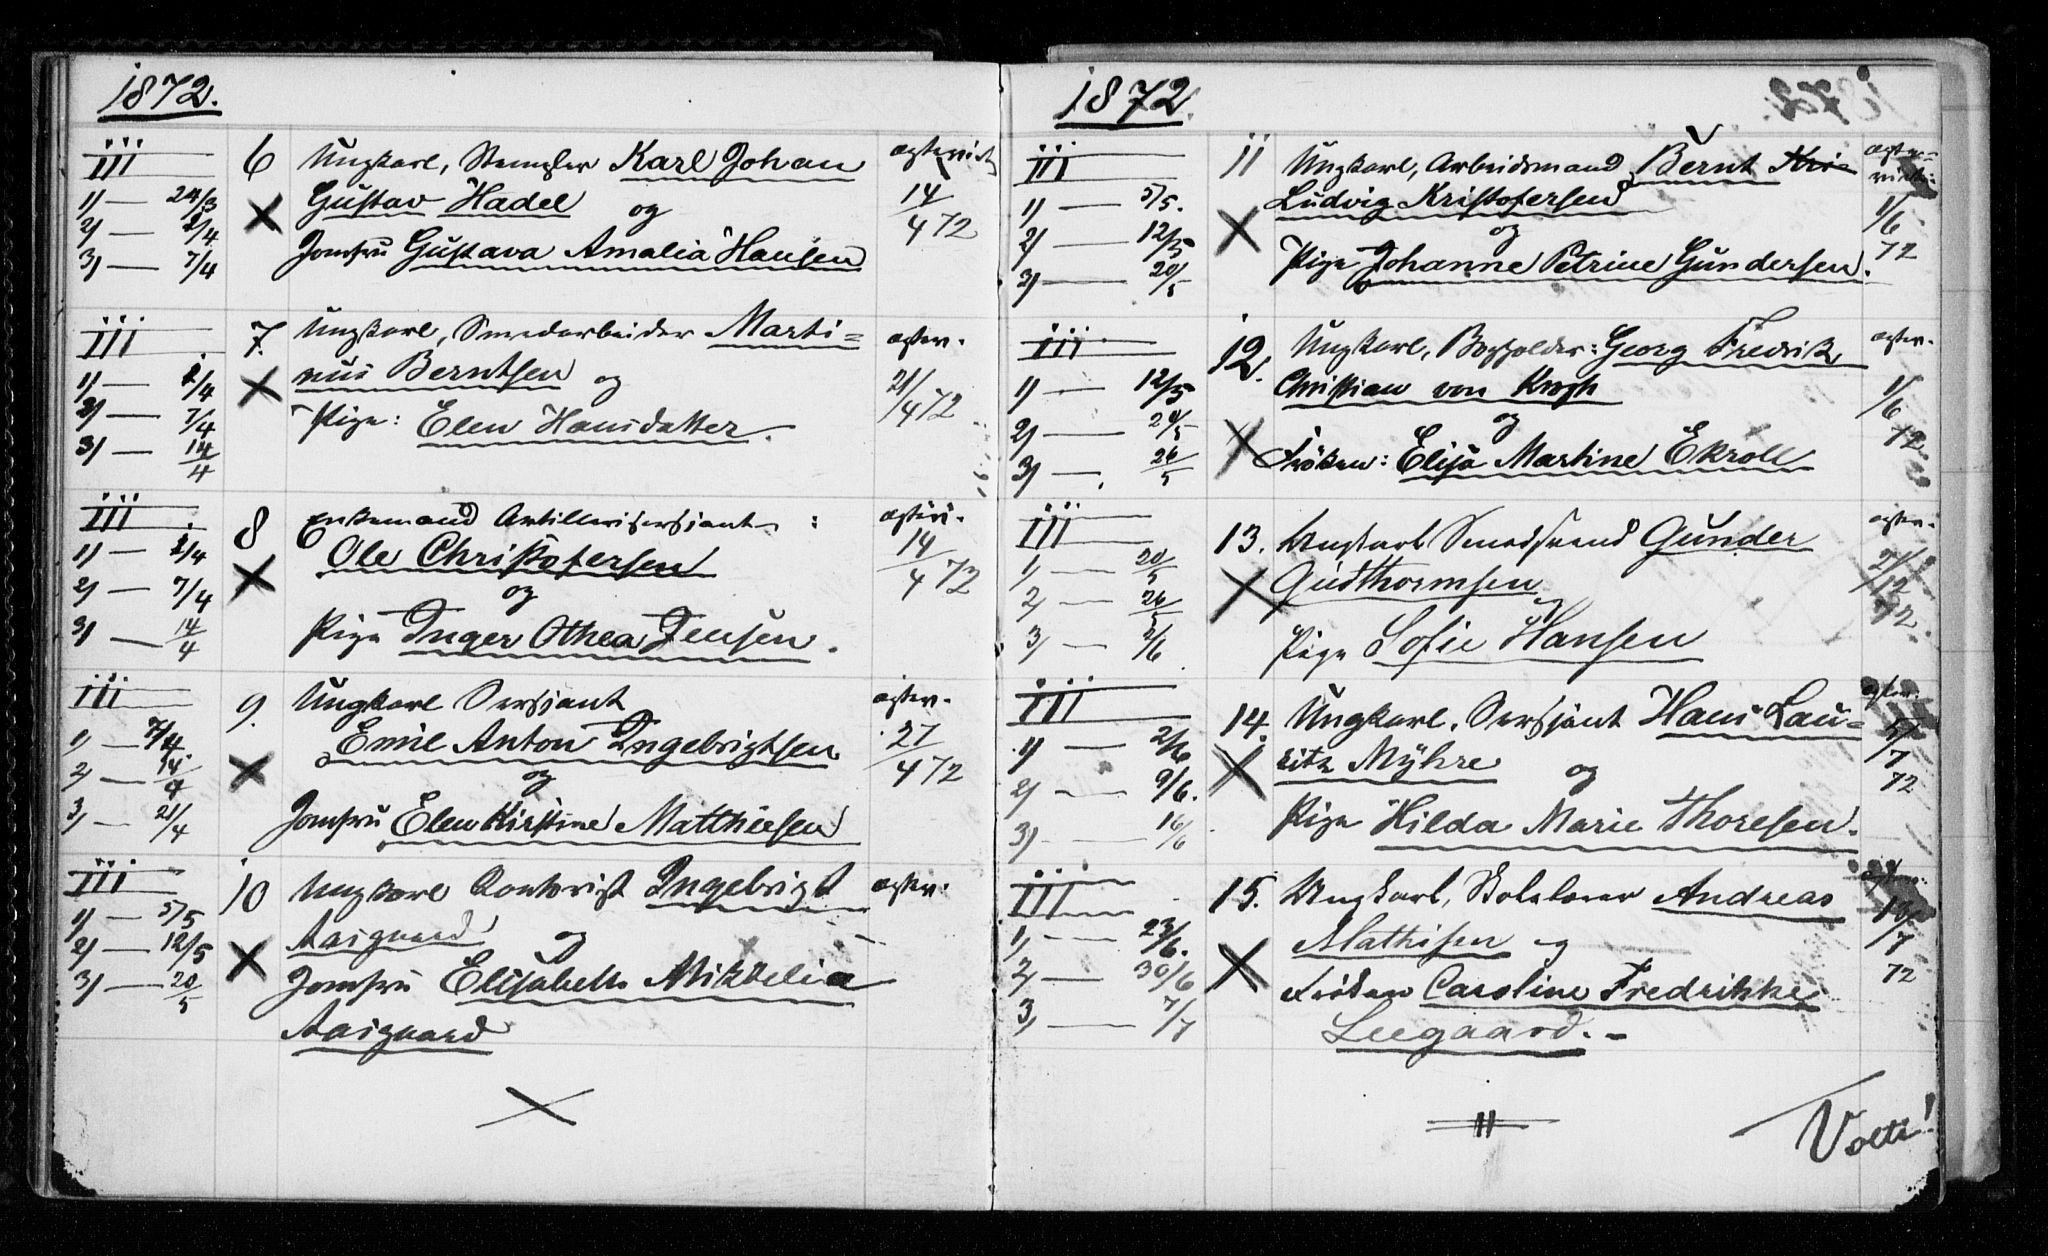 1872.
III 6 Ungkarl, Stempler Karl Johan ægteviet
1) — 24/3 Gustav Hadel og 14/4 72
2) — 2/4
3) — 7/4 Jomfru Gustava Amalia Hansen
III 7. Ungkarl, Smedarbeider Marti= ægtev.
1) — 2/4 nus Berntsen og 21/4 72
2) — 7/4 Pige: Elen Hansdatter.
3) — 14/4
III 8 Enkemand Artillerisersjant :  ægtevi.
1) — 2/4 Ole Christofersen 14/4 72
2) — 7/4 og
3) — 14/4 Pige Inger Othea Jensen.
III 9. Ungkarl Sersjant ægtev.
1) — 7/4 Emil Anton Ingebrigtsen 27/4 72
2) — 14/4 og
3) — 21/4 Jomfru Elen Kirstine Matthiesen
III 10 Ungkarl Kontorist Ingebrigt ægtev.
1) — 5/5 Aasgaard og
2) — 12/5
3) — 20/5 Jomfru Elisabeth Mikkelia
Aasgaard
1872.
III 11 Ungkarl, Arbeidsmand Bernt Kri= ægte=
1) — 5/5. Ludvig Kristofersen viet: 1/6 72
2) — 12/5 og
3) — 20/5 Pige Johanne Petrine Gundersen.
III 12. Ungkarl, Bogholder: Georg Fredrik ægtev.
1) — 12/5 Christian von Krogh 1/6 72
2) — 20/5 og
3) — 26/5 Frøken: Elisa Martine Ekroll
III 13. Ungkarl Smedsvend Gunder ægtev.
1) — 20/5 Gudthormsen og 72
2) — 26/5
3) — 2/6 Pige Sofie Hansen
III 14. Ungkarl, Sersjant Hans Lau= ægtev.
1) — 2/6 ritz Myhre og 5/7 72
2) — 9/6.
3) — 16/6 Pige Hilda Marie Thoresen.
III 15. Ungkarl, Skolelærer Andreas
1) — 23/6. Mathisen og /7 72
2) — 30/6 Frøken Caroline Fredrikke
3) — 7/7 Leegaard. —
Volti!